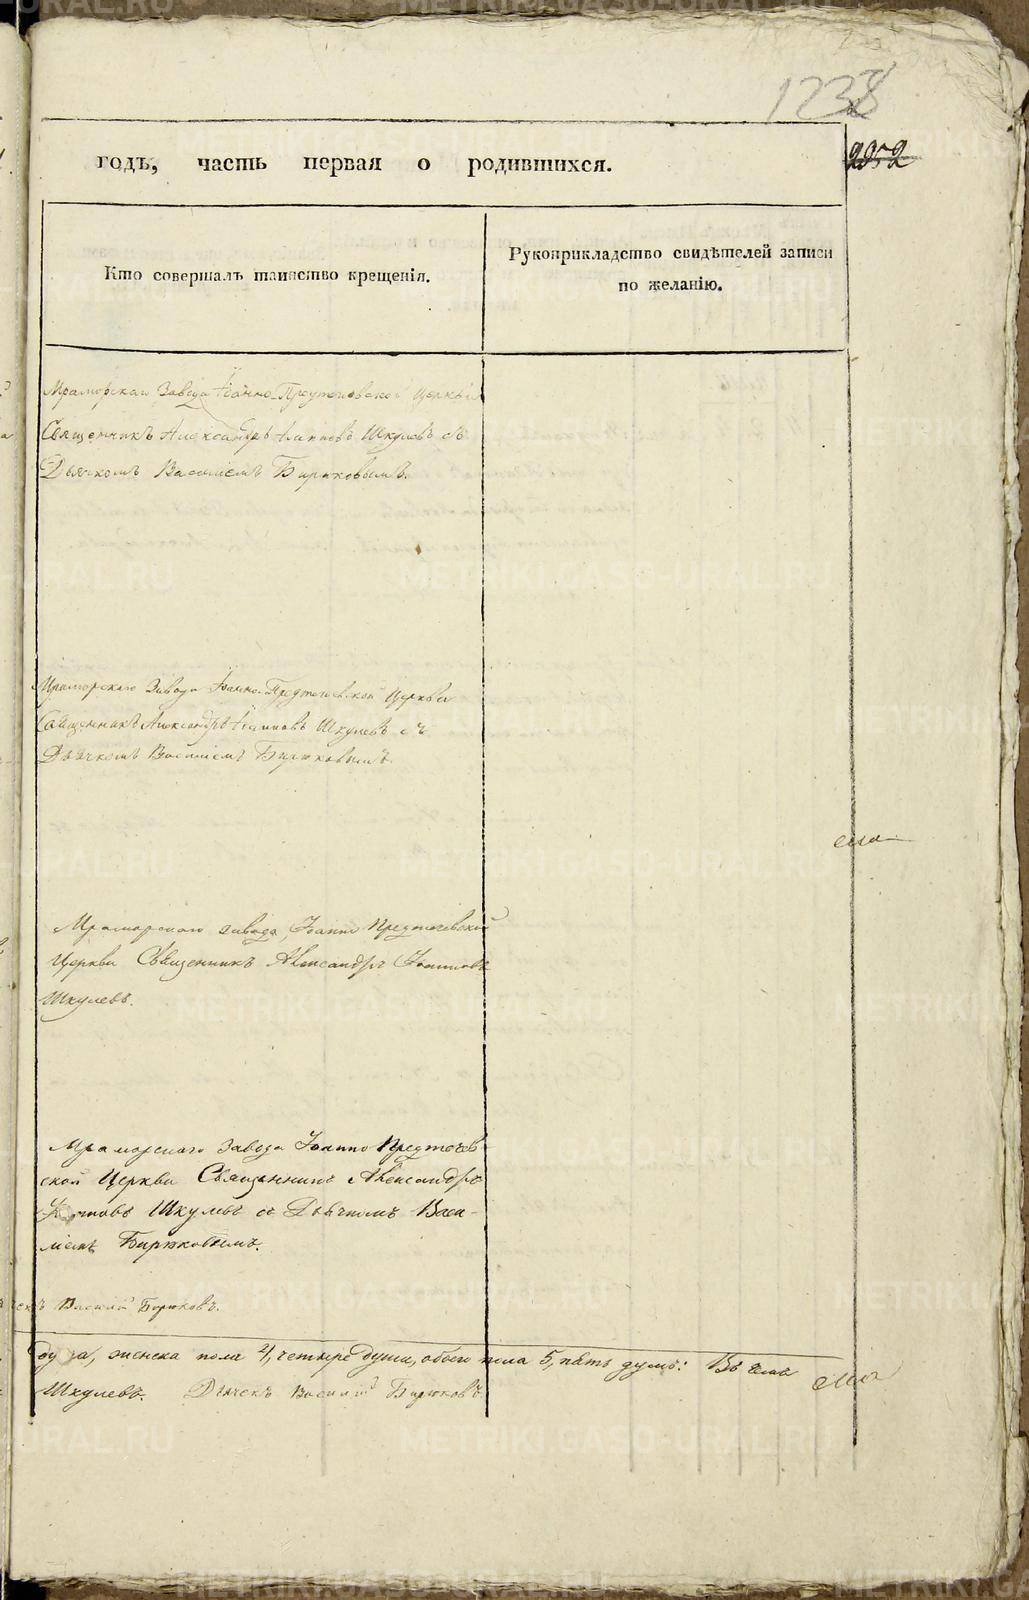 1238
годъ, часть первая о родившихся.
2252
Кто совершалъ таинство крещенія.
Рукоприкладство свидѣтелей записи
по желанію.
Мраморскаго Завода Іоанно-Предтечевской Церкви
Священникъ Александръ Іаковлевъ Шкулевъ съ
Дьячкомъ Василіемъ Бирюковымъ.
Мраморскаго Завода Іоанно-Предтечевской Церкви
Священникъ Александръ Шкулевъ съ
Дьячкомъ Василіемъ Бирюковымъ.
Мраморскаго завода Іоанно Предтечевской
Церкви Священникъ Александръ
Шкулевъ.
Мраморскаго Завода Іоанно Предтечев-
ской Церкви Священникъ Александръ
Шкулевъ съ Дьячкомъ Васи-
ліемъ Бирюковымъ.
Василій Бирюковъ.
душа, женска пола 4, четыре души, обоего пола 5, пять душъ: Въ чемъ
Шкулевъ. Дьячекъ Василій Бирюковъ
METRIKI.GASO-URAL.RU